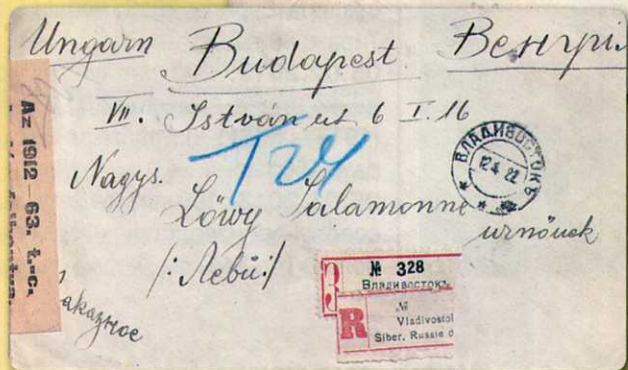 Ungarn Budapest Венгрі
VII. István út 6 I. 16
T 24
Nagys.
Löwy Salamonné
urnőnek
/: Леви :/
заказное
ВЛАДИВОСТОКЪ
12 4 22
№ 328
Владивостокъ
З
R
№
Vladivostok
Siber. Russie d
Az 1912–63. t.-c.